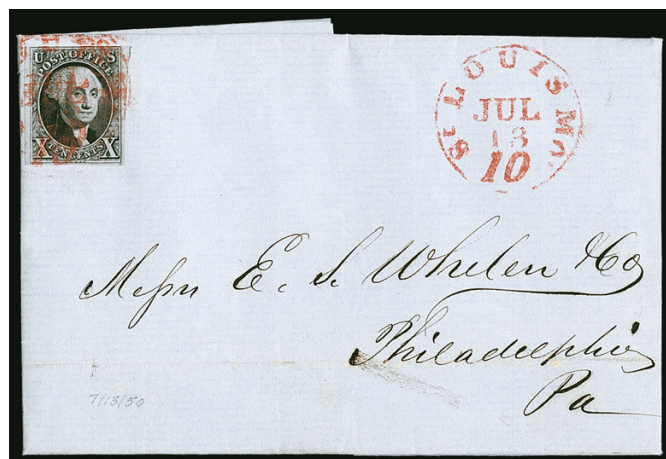 U S
POST OFFICE
X TEN CENTS X
St LOUIS Mo.
JUL
13
10
Messrs E. S. Whelen & Co
Philadelphia
Pa
7/13/50